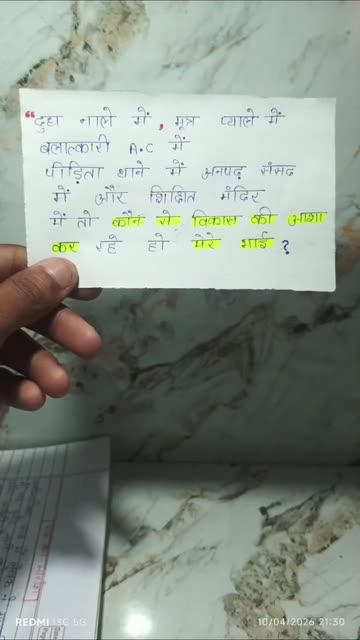 "दुध नाले में, मूत्र प्याले में
बलात्कारी A.C में
पीड़िता थाने में अनपढ़ संसद
में और शिक्षित मंदिर
में तो कौन से विकास की आशा
कर रहे हो मेरे भाई ?
REDMI 13C 5G
10/04/2026 21:30